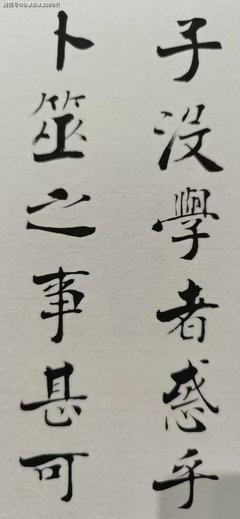 子没學者惑乎
卜筮之事甚可